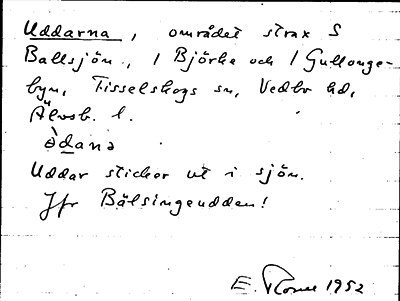 Uddarna, området strax S
Ballsjön, 1 Björke och 1 Gullunge-
byn, Tisselskogs sn, Vedbo hd,
Älvsb. l.
ə̀danə
Uddar sticker ut i sjön.
Jfr Bälsingeudden!
E. 1952